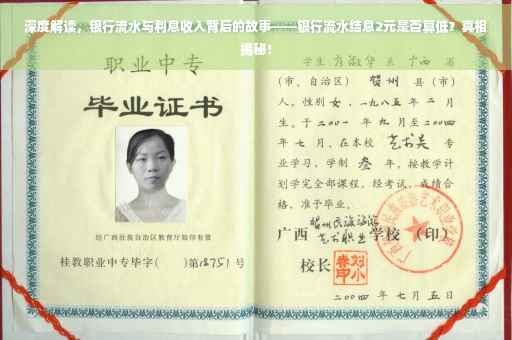 深度解读，银行流水与利息收入背后的故事——银行流水结息2元是否算低？真相
揭秘！
职业中专
毕业证书
经广西壮族自治区教育厅验印有效
桂教职业中专毕字（ ）第13751号
学生
省
（市、自治区）贺州 县（市）
人，性别女，一九八五年二月
生。于二〇〇一年九月至二〇〇四
年七月，在本校 艺术类 专
业学习，学制 叁 年，按教学计
划学完全部课程，经考试，成绩合
格，准予毕业。
广西 贺州民族旅游艺术职业学校（印）
校长
二〇〇四年七月五日